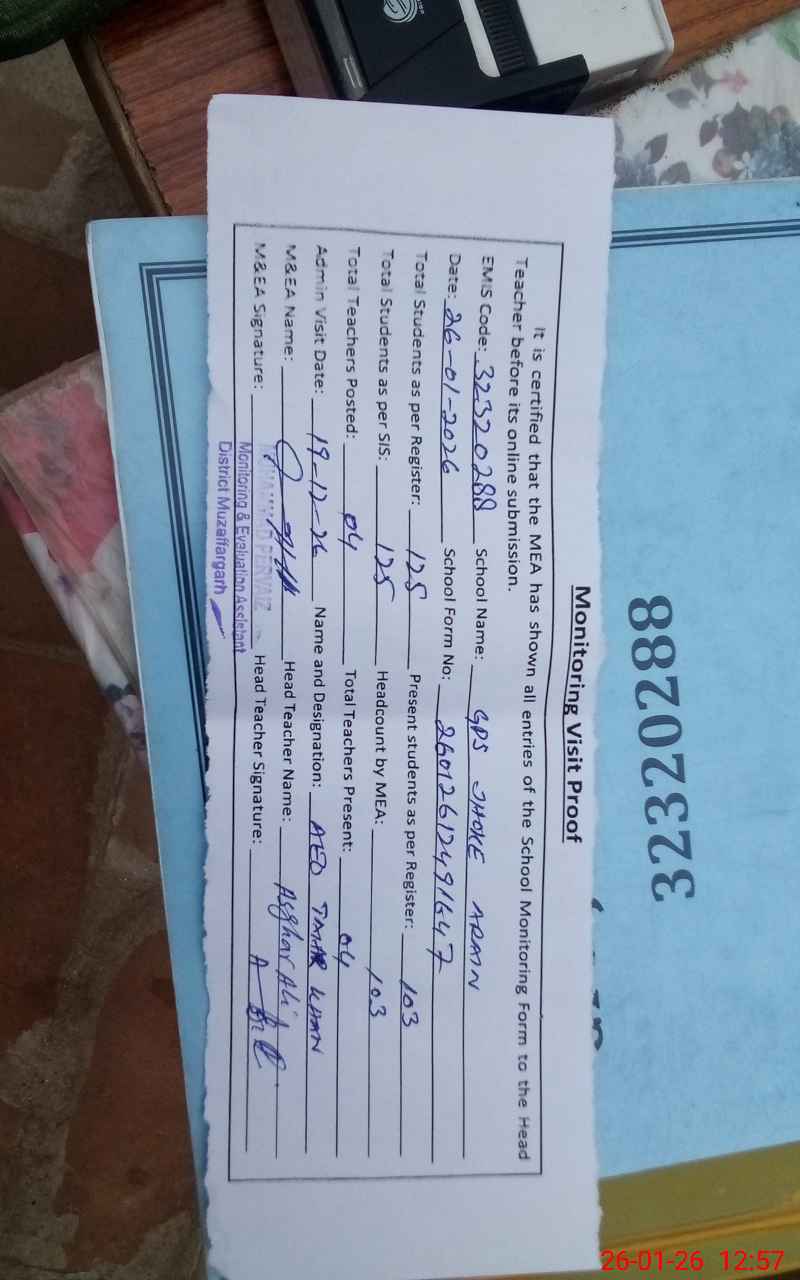 Monitoring Visit Proof
It is certified that the MEA has shown all entries of the School Monitoring Form to the Head
Teacher before its online submission.
EMIS Code: 32320288 School Name: GPS JHOKE ARAIN
Date: 26-01-2026 School Form No: 26012612491647
Total Students as per Register: 125 Present students as per Register: 103
Total Students as per SIS: 125 Headcount by MEA: 103
Total Teachers Posted: 04 Total Teachers Present: 04
Admin Visit Date: 19-12-26 Name and Designation: AEO KHAN
M&EA Name: Head Teacher Name: Asghar Ali
M&EA Signature: Head Teacher Signature:
MUHAMMAD PERVAIZ
Monitoring & Evaluation Assistant
District Muzaffargarh
32320288
26-01-26 12:57